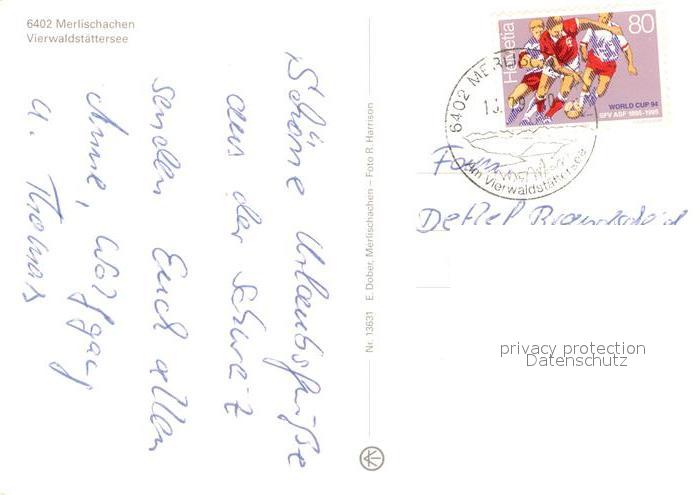 6402 Merlischachen
Vierwaldstättersee
Schöne Urlaubsgrüße
aus der Schweiz
senden Euch allen
Anne, Wolfgang
u. Thomas
Nr. 13631 E. Dober, Merlischachen – Foto R. Harrison
Helvetia
80
WORLD CUP 94
SFV ASF 1895-1995
6402
am Vierwaldstättersee
Detlef
privacy protection
Datenschutz